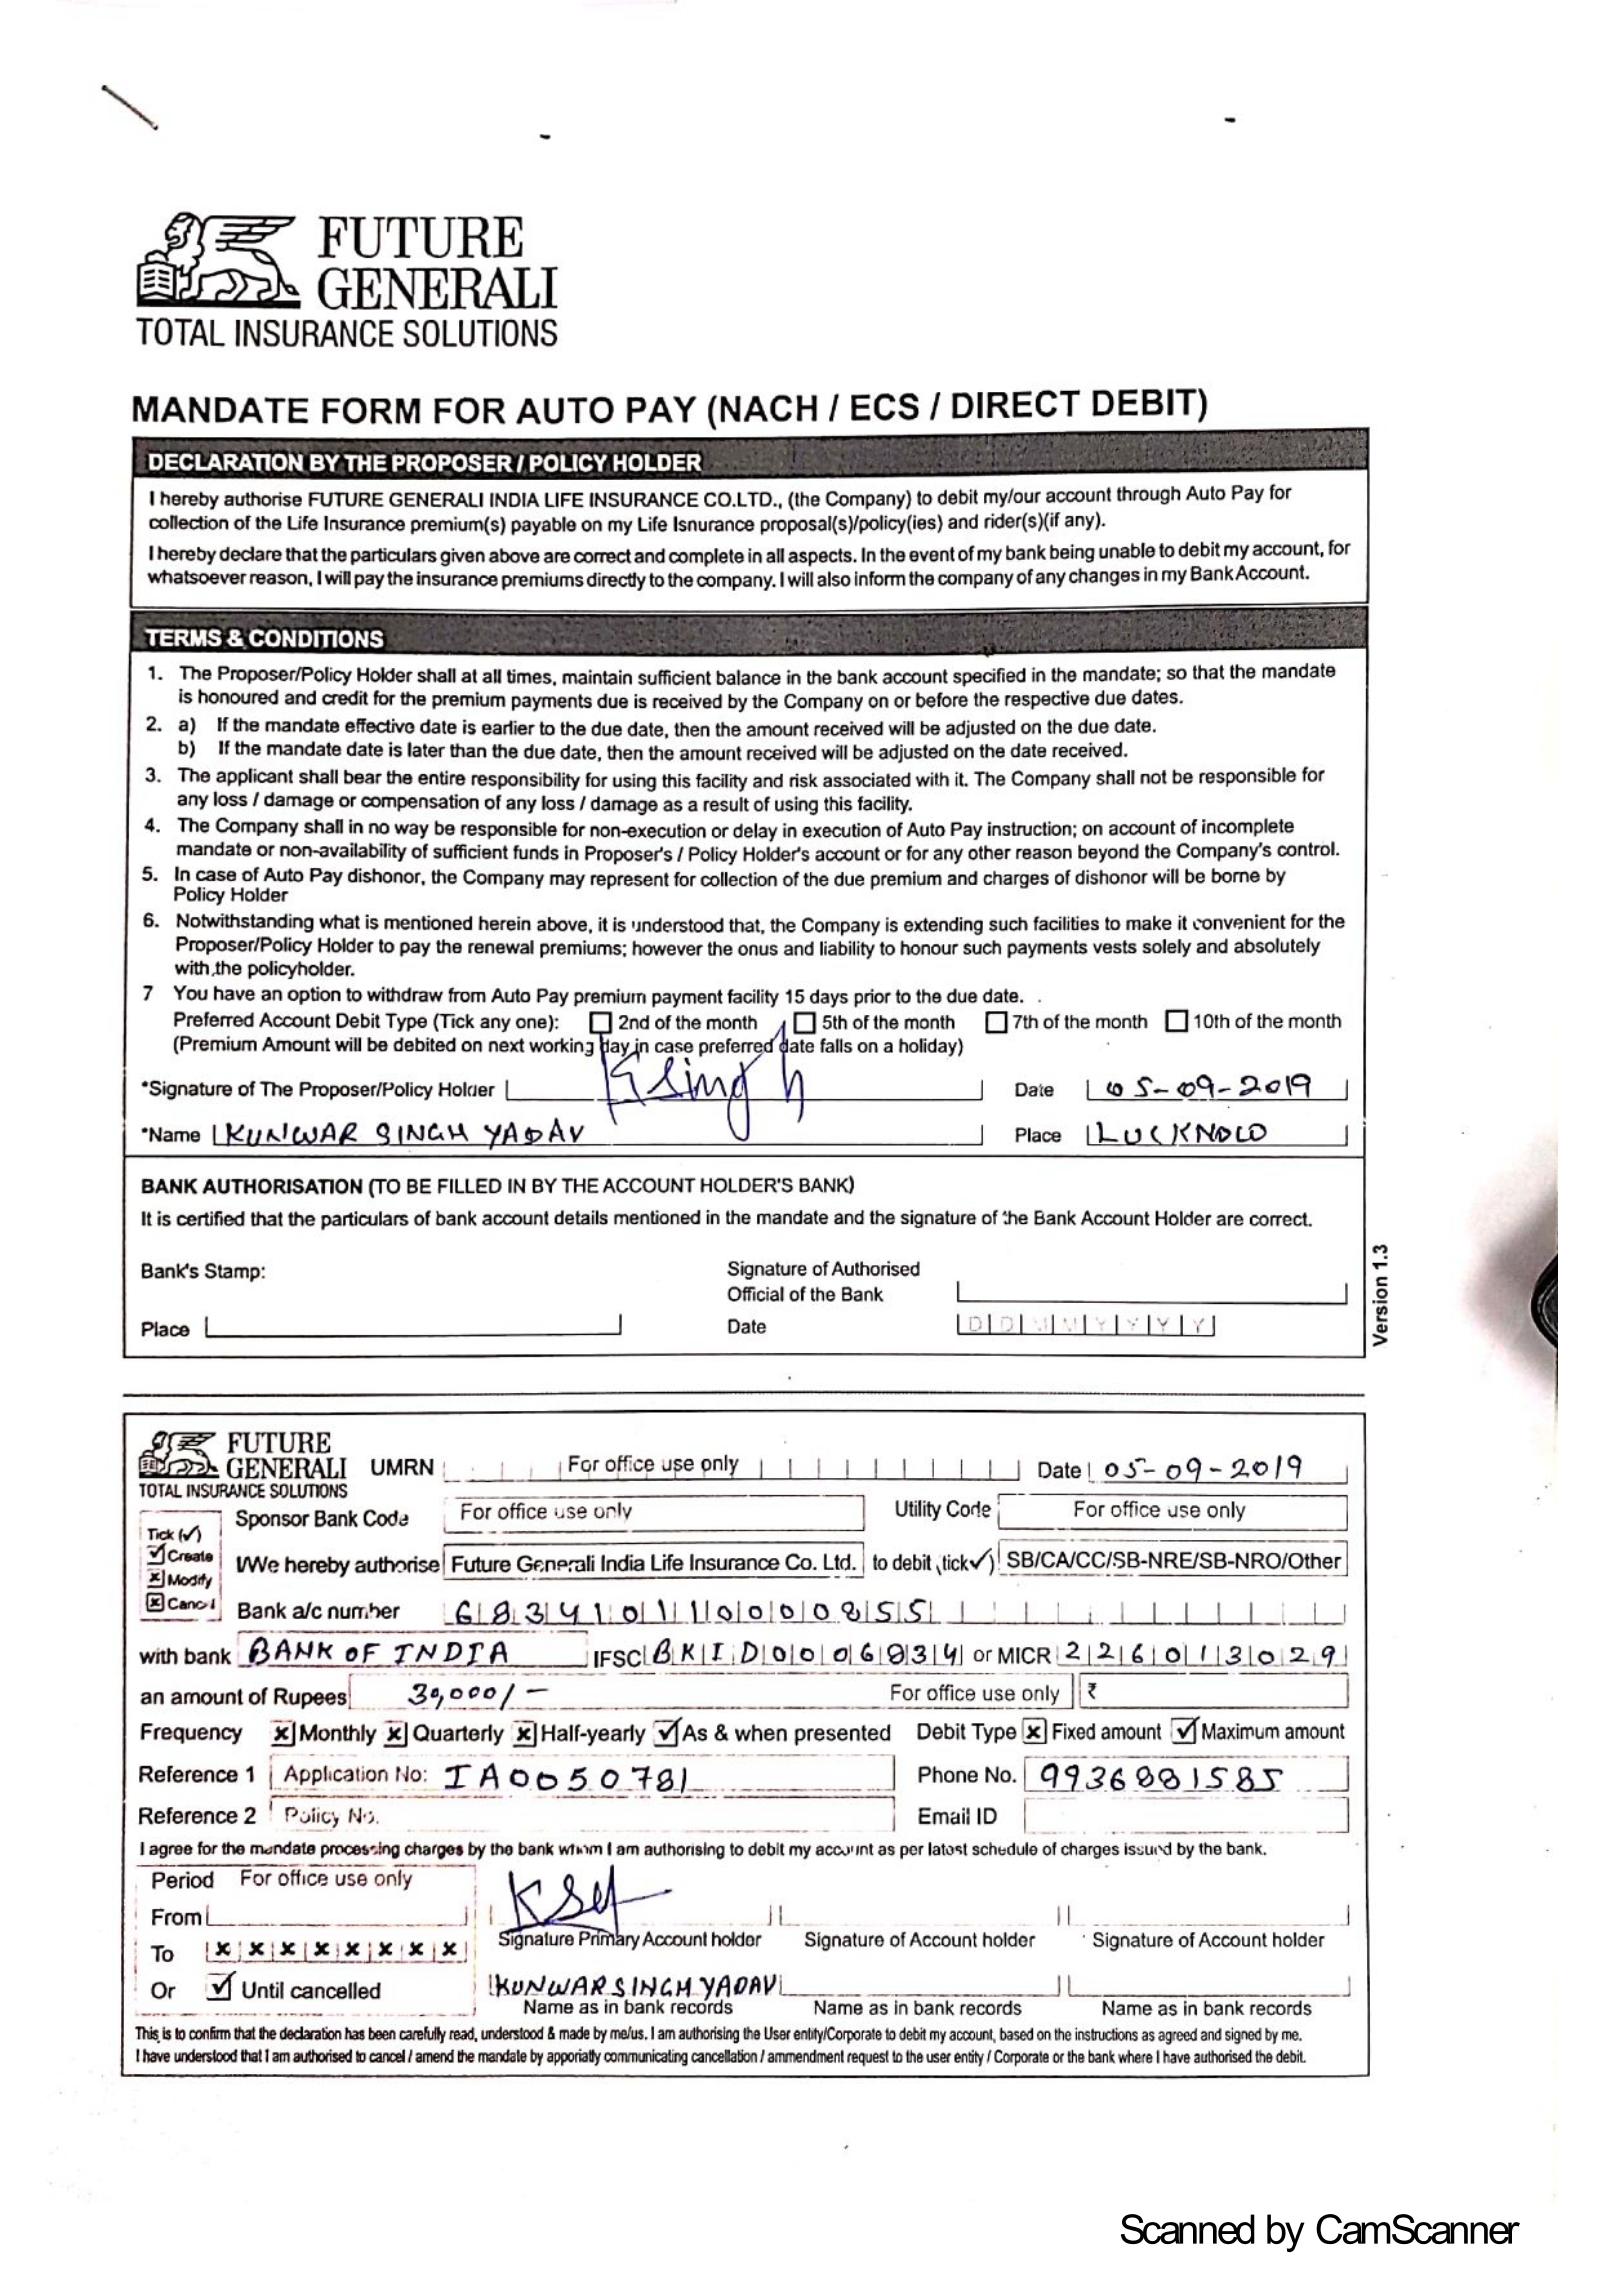 FUTURE
GENERALI
TOTAL INSURANCE SOLUTIONS
MANDATE FORM FOR AUTO PAY (NACH / ECS / DIRECT DEBIT)
DECLARATION BY THE PROPOSER / POLICY HOLDER
I hereby authorise FUTURE GENERALI INDIA LIFE INSURANCE CO.LTD., (the Company) to debit my/our account through Auto Pay for
collection of the Life Insurance premium(s) payable on my Life Isnurance proposal(s)/policy(ies) and rider(s)(if any).
I hereby declare that the particulars given above are correct and complete in all aspects. In the event of my bank being unable to debit my account, for
whatsoever reason, I will pay the insurance premiums directly to the company. I will also inform the company of any changes in my Bank Account.
TERMS & CONDITIONS
1. The Proposer/Policy Holder shall at all times, maintain sufficient balance in the bank account specified in the mandate; so that the mandate
is honoured and credit for the premium payments due is received by the Company on or before the respective due dates.
2. a) If the mandate effective date is earlier to the due date, then the amount received will be adjusted on the due date.
b) If the mandate date is later than the due date, then the amount received will be adjusted on the date received.
3. The applicant shall bear the entire responsibility for using this facility and risk associated with it. The Company shall not be responsible for
any loss / damage or compensation of any loss / damage as a result of using this facility.
4. The Company shall in no way be responsible for non-execution or delay in execution of Auto Pay instruction; on account of incomplete
mandate or non-availability of sufficient funds in Proposer's / Policy Holder's account or for any other reason beyond the Company's control.
5. In case of Auto Pay dishonor, the Company may represent for collection of the due premium and charges of dishonor will be borne by
Policy Holder
6. Notwithstanding what is mentioned herein above, it is understood that, the Company is extending such facilities to make it convenient for the
Proposer/Policy Holder to pay the renewal premiums; however the onus and liability to honour such payments vests solely and absolutely
with the policyholder.
7 You have an option to withdraw from Auto Pay premium payment facility 15 days prior to the due date.
Preferred Account Debit Type (Tick any one): 2nd of the month 5th of the month 7th of the month 10th of the month
(Premium Amount will be debited on next working day in case preferred date falls on a holiday)
*Signature of The Proposer/Policy Holder Ksingh Date 05-09-2019
*Name KUNWAR SINGH YADAV Place LUCKNOW
BANK AUTHORISATION (TO BE FILLED IN BY THE ACCOUNT HOLDER'S BANK)
It is certified that the particulars of bank account details mentioned in the mandate and the signature of the Bank Account Holder are correct.
Bank's Stamp: Signature of Authorised
Official of the Bank
Place Date D D M M Y Y Y Y
Version 1.3
FUTURE
GENERALI UMRN For office use only Date 05-09-2019
TOTAL INSURANCE SOLUTIONS
Sponsor Bank Code For office use only Utility Code For office use only
Tick (✓)
Create
Modify
Cancel
I/We hereby authorise Future Generali India Life Insurance Co. Ltd. to debit (tick✓) SB/CA/CC/SB-NRE/SB-NRO/Other
Bank a/c number 683410110000855
with bank BANK OF INDIA IFSC BKID0006834 or MICR 226013029
an amount of Rupees 30,000/- For office use only ₹
Frequency Monthly Quarterly Half-yearly As & when presented Debit Type Fixed amount Maximum amount
Reference 1 Application No: IA0050781 Phone No. 9936881585
Reference 2 Policy No. Email ID
I agree for the mandate processing charges by the bank whom I am authorising to debit my account as per latest schedule of charges issued by the bank.
Period For office use only
From
To x x x x x x x x
Or Until cancelled
Signature Primary Account holder Signature of Account holder Signature of Account holder
KUNWAR SINGH YADAV
Name as in bank records Name as in bank records Name as in bank records
This is to confirm that the declaration has been carefully read, understood & made by me/us. I am authorising the User entity/Corporate to debit my account, based on the instructions as agreed and signed by me.
I have understood that I am authorised to cancel / amend the mandate by apporiatly communicating cancellation / ammendment request to the user entity / Corporate or the bank where I have authorised the debit.
Scanned by CamScanner